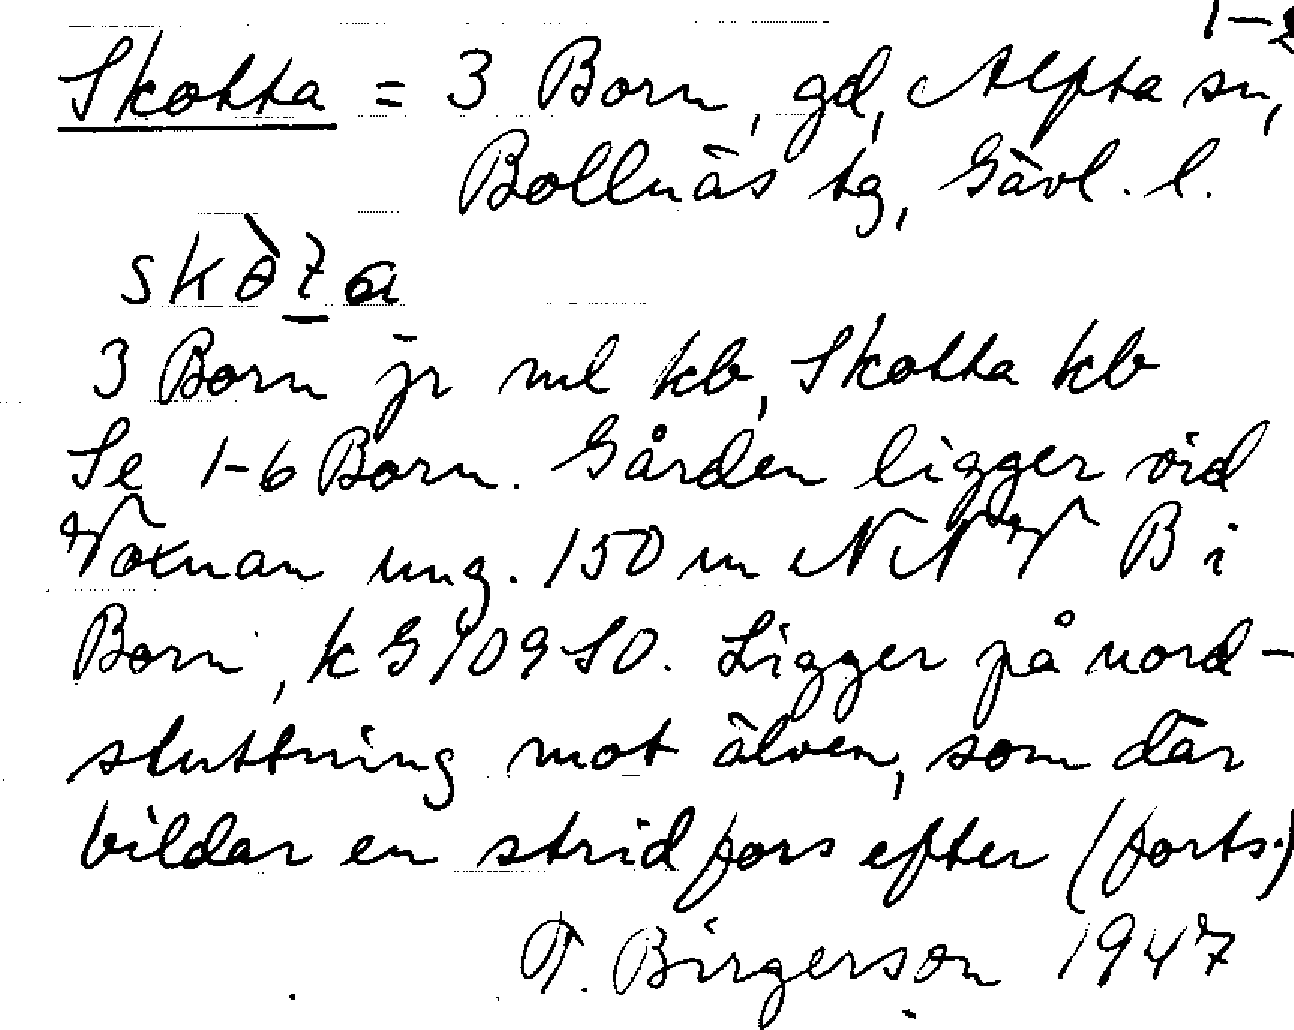 1-2
Skotta = 3 Born, gd, Alfta sn,
Bollnäs tg, Gävl. l.
3 Born jr ml kb, Skotta kb
Se 1-6 Born. Gården ligger vid
Voxnan ung. 150 m NNV B i
Born, k G 109 SO. Ligger på nord-
sluttning mot älven, som där
bildar en strid fors efter (forts.)
T. Birgerson 1947